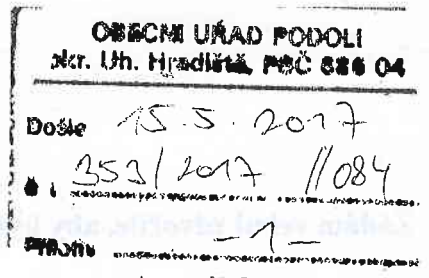 OBECNÍ ÚŘAD PODOLÍ
okr. Uh. Hradiště, PSČ 686 04
Došlo 15.5.2017
Č. j. 353/2017 //084
Přílohy -1-